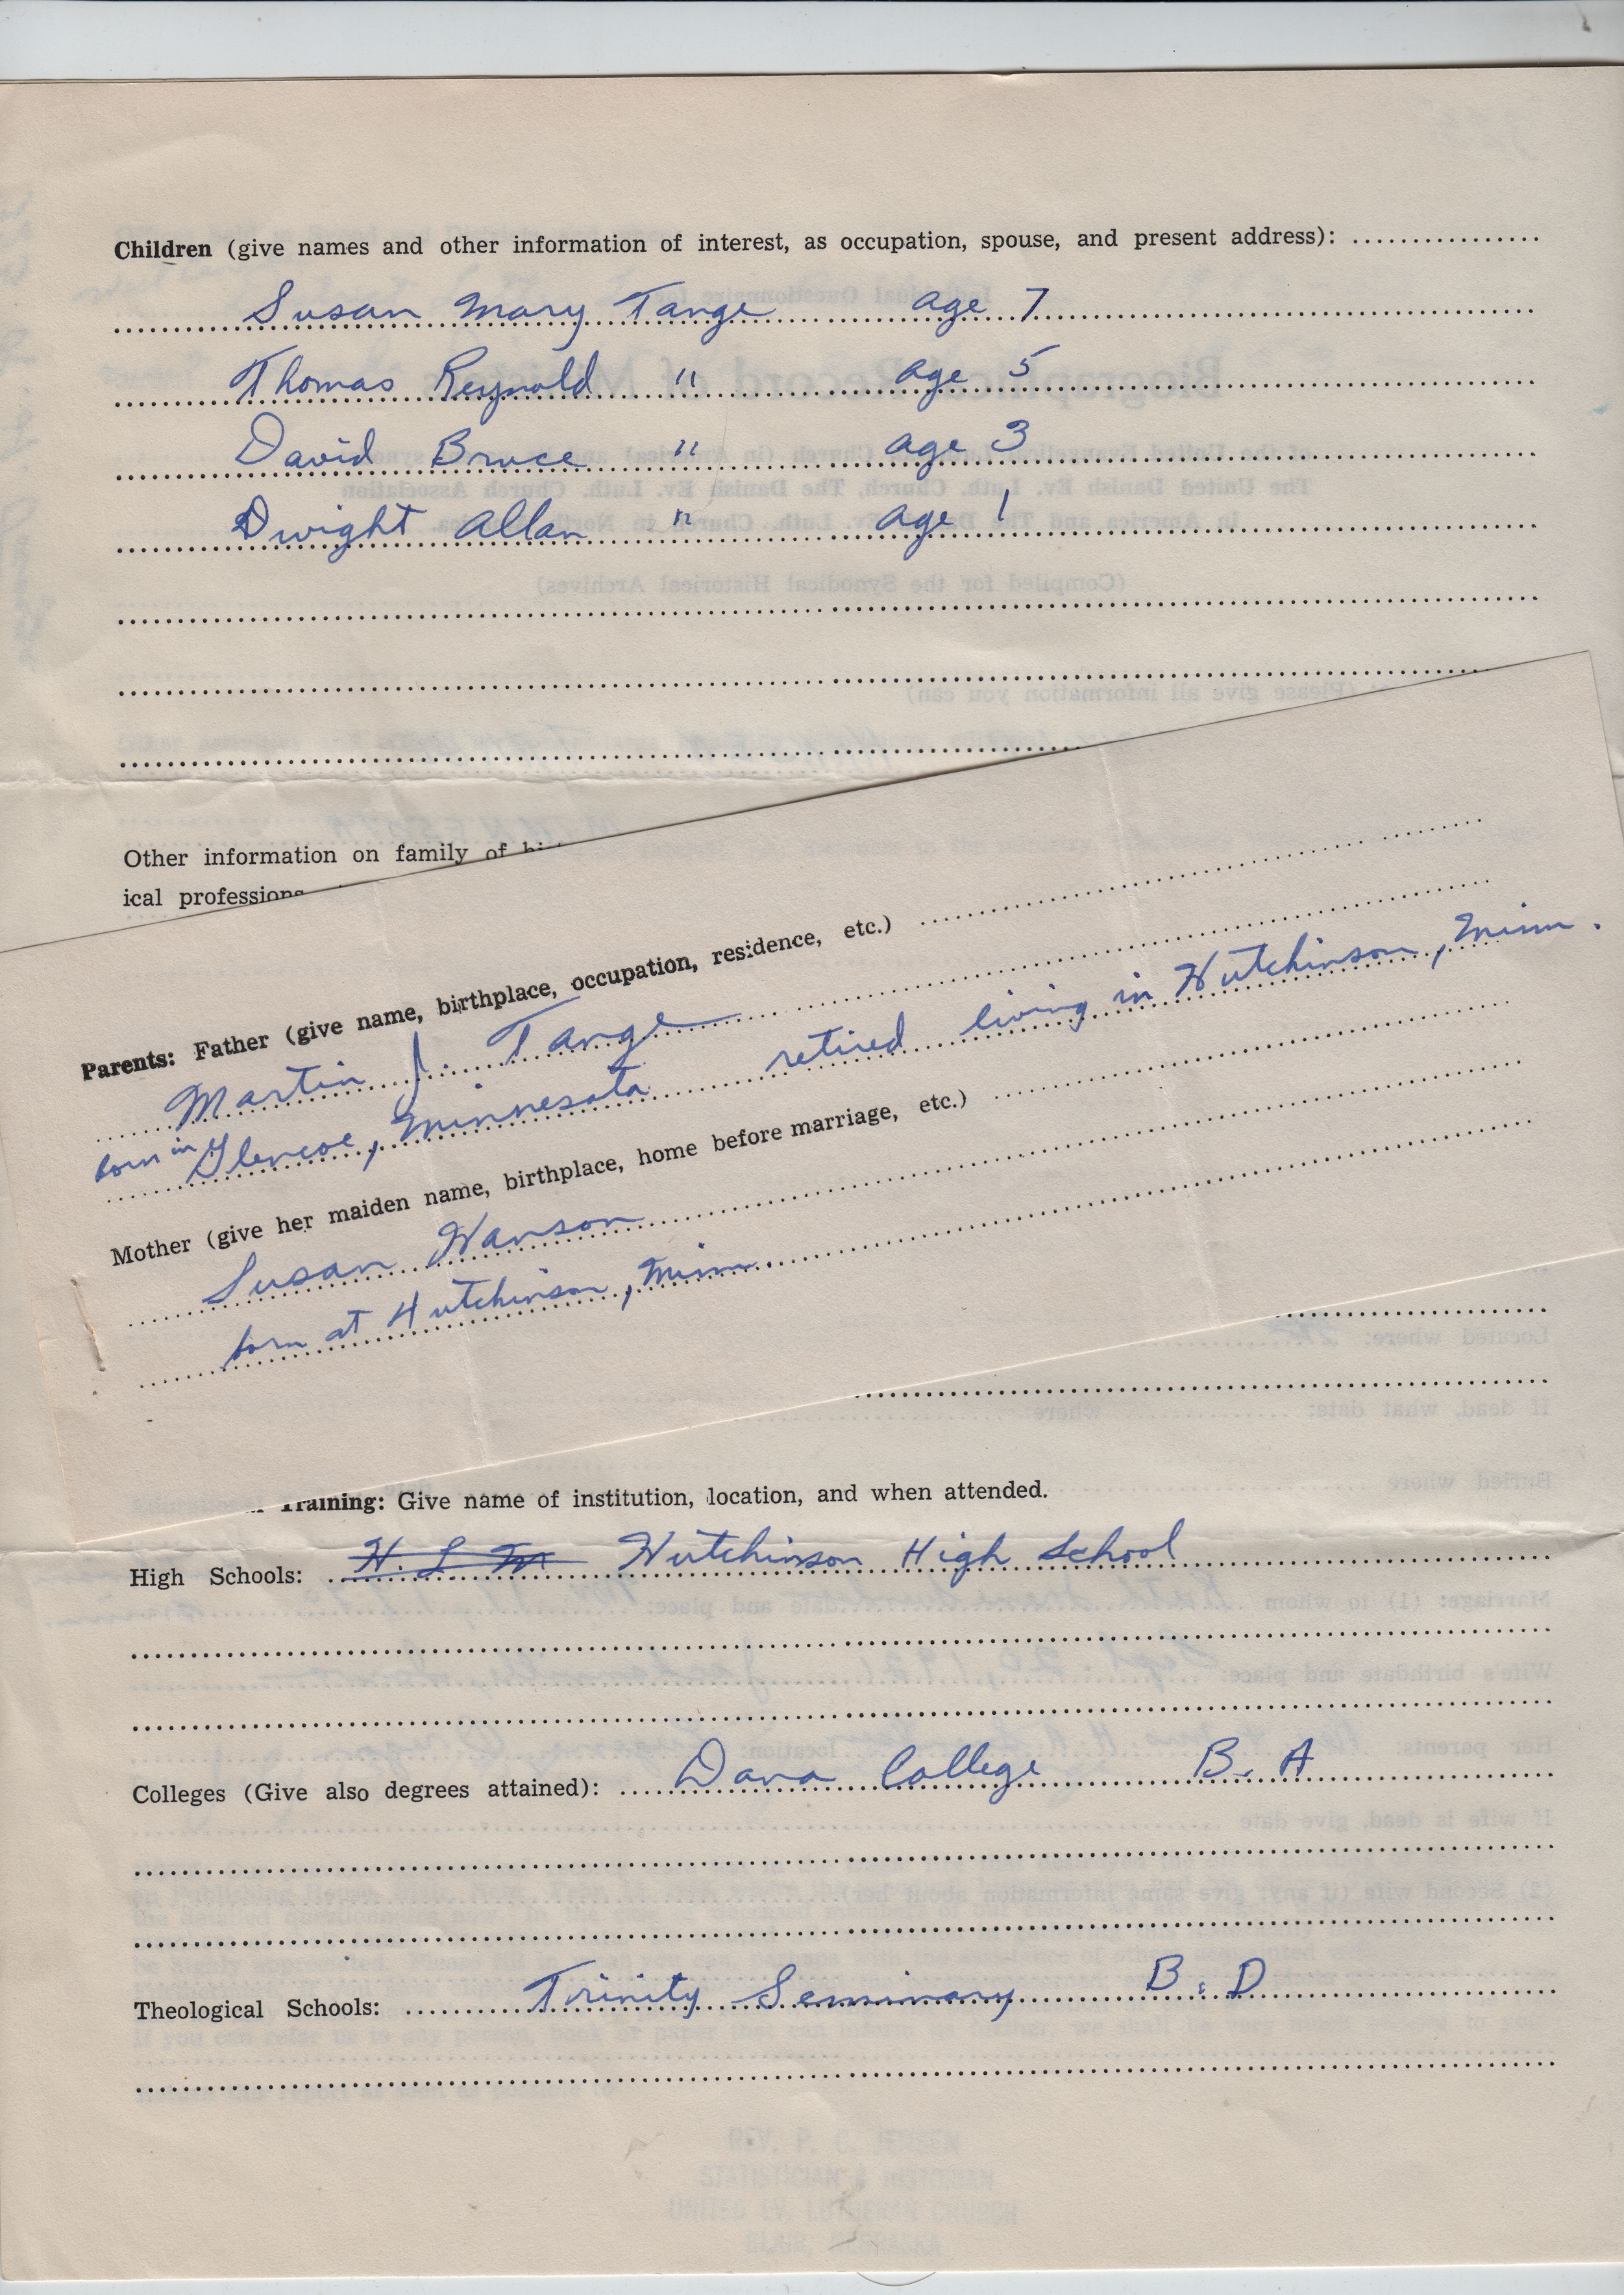 Children (give names and other information of interest, as occupation, spouse, and present address):
Susan Mary Tange age 7
Thomas Reynold " age 5
David Bruce " age 3
Dwight Allan " age 1
Other information on family of
ical professions
Parents: Father (give name, birthplace, occupation, residence, etc.)
Martin J. Tange
born in Glencoe, Minnesota retired living in Hutchinson, Minn.
Mother (give her maiden name, birthplace, home before marriage, etc.)
Susan Hanson
born at Hutchinson, Minn.
Training: Give name of institution, location, and when attended.
High Schools: H. L M Hutchinson High School
Colleges (Give also degrees attained): Dana College B. A
Theological Schools: Trinity Seminary B. D
REV. P. C. JENSEN
STATISTICIAN & HISTORIAN
UNITED EV. LUTHERAN CHURCH
BLAIR, NEBRASKA